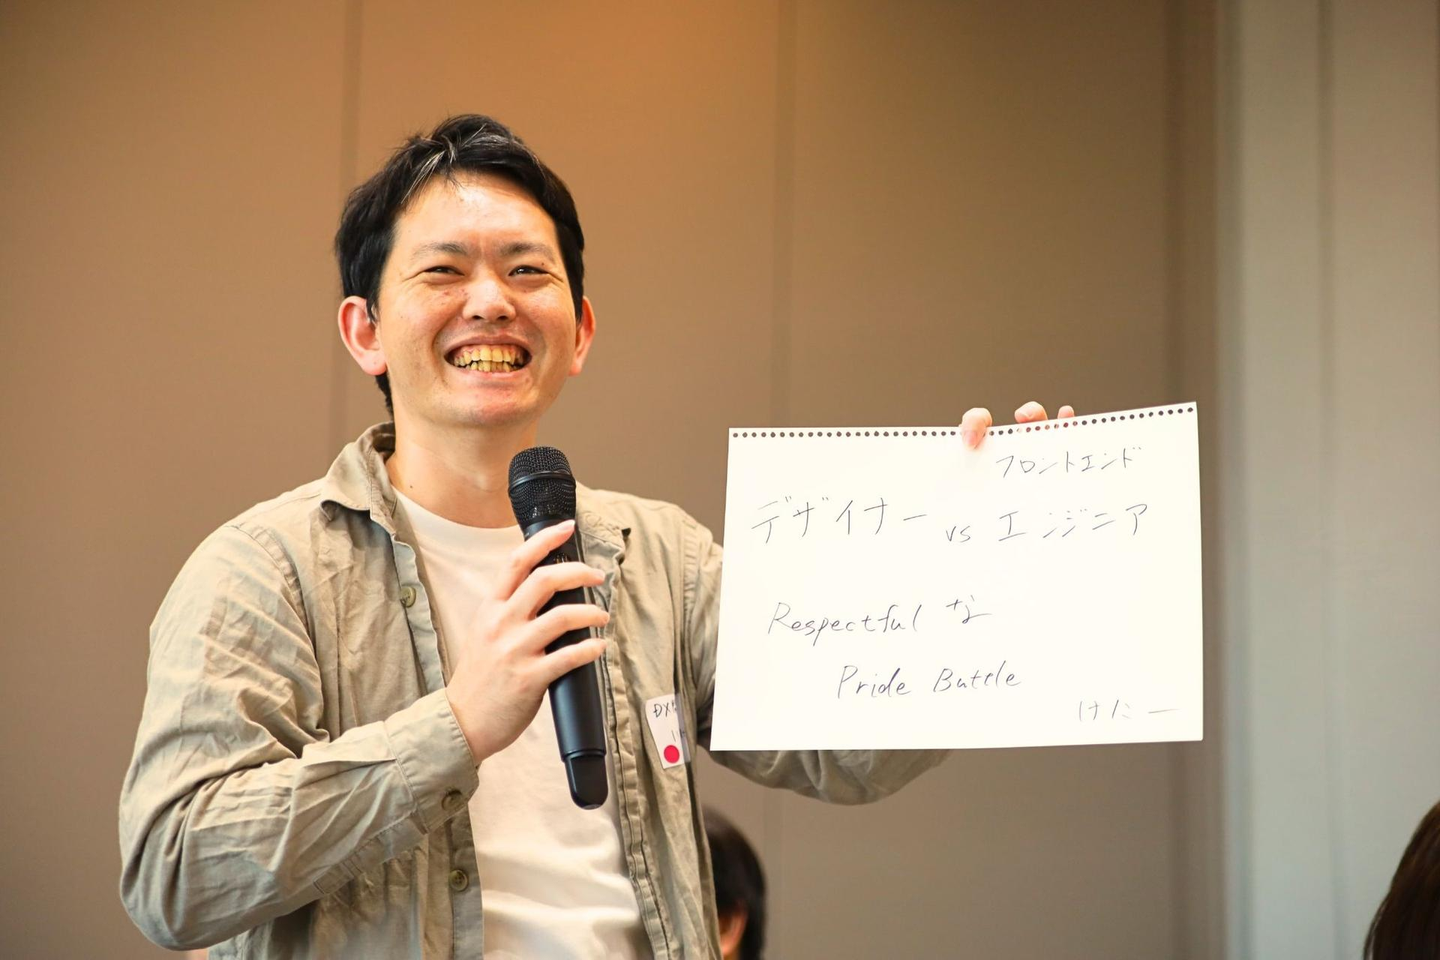 フロントエンド
デザイナー vs エンジニア
Respectful な
Pride Battle
けたー
DX